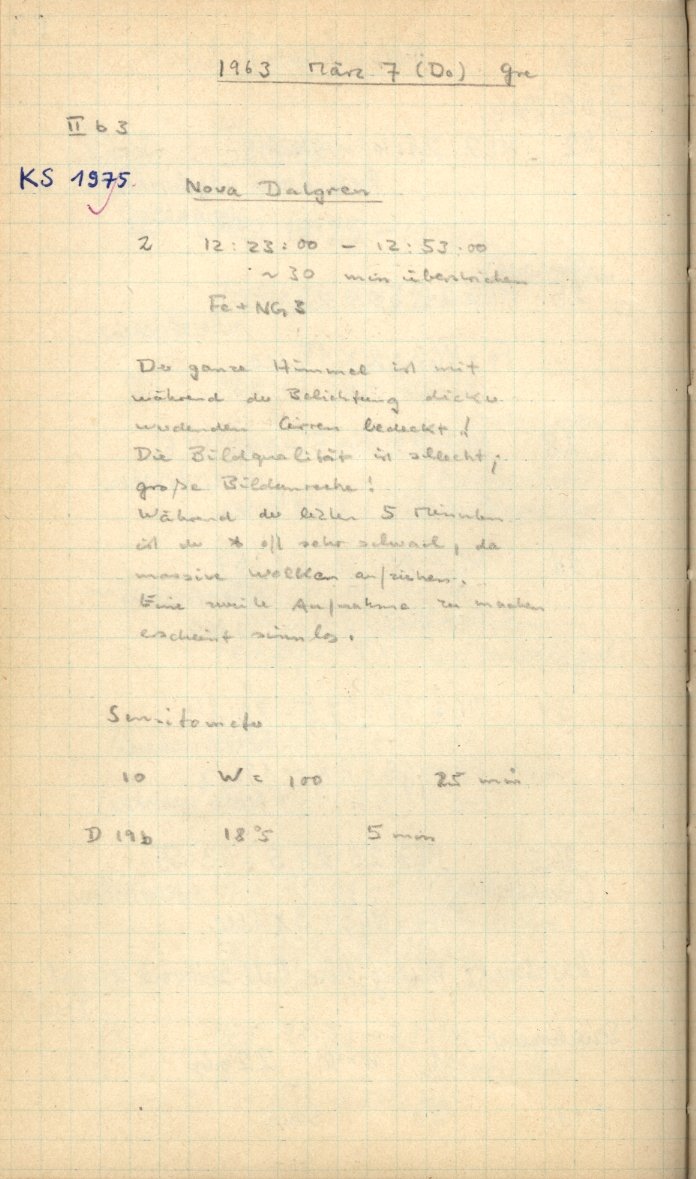 1963 März 7 (Do) gre
II b 3
KS 1975
Nova Dalgren
2 12:23:00 – 12:53:00
~ 30 min überstrichen
Fe + NG 3
Der ganze Himmel ist mit
während der Belichtung dicker
werdenden Cirren bedeckt!
Die Bildqualität ist schlecht;
große Bildunruhe!
Während der letzten 5 Minuten
ist der * oft sehr schwach, da
massive Wolken aufziehen.
Eine zweite Aufnahme zu machen
erscheint sinnlos.
Sensitometer
10 W = 100 25 min
D 19b 18°5 5 min